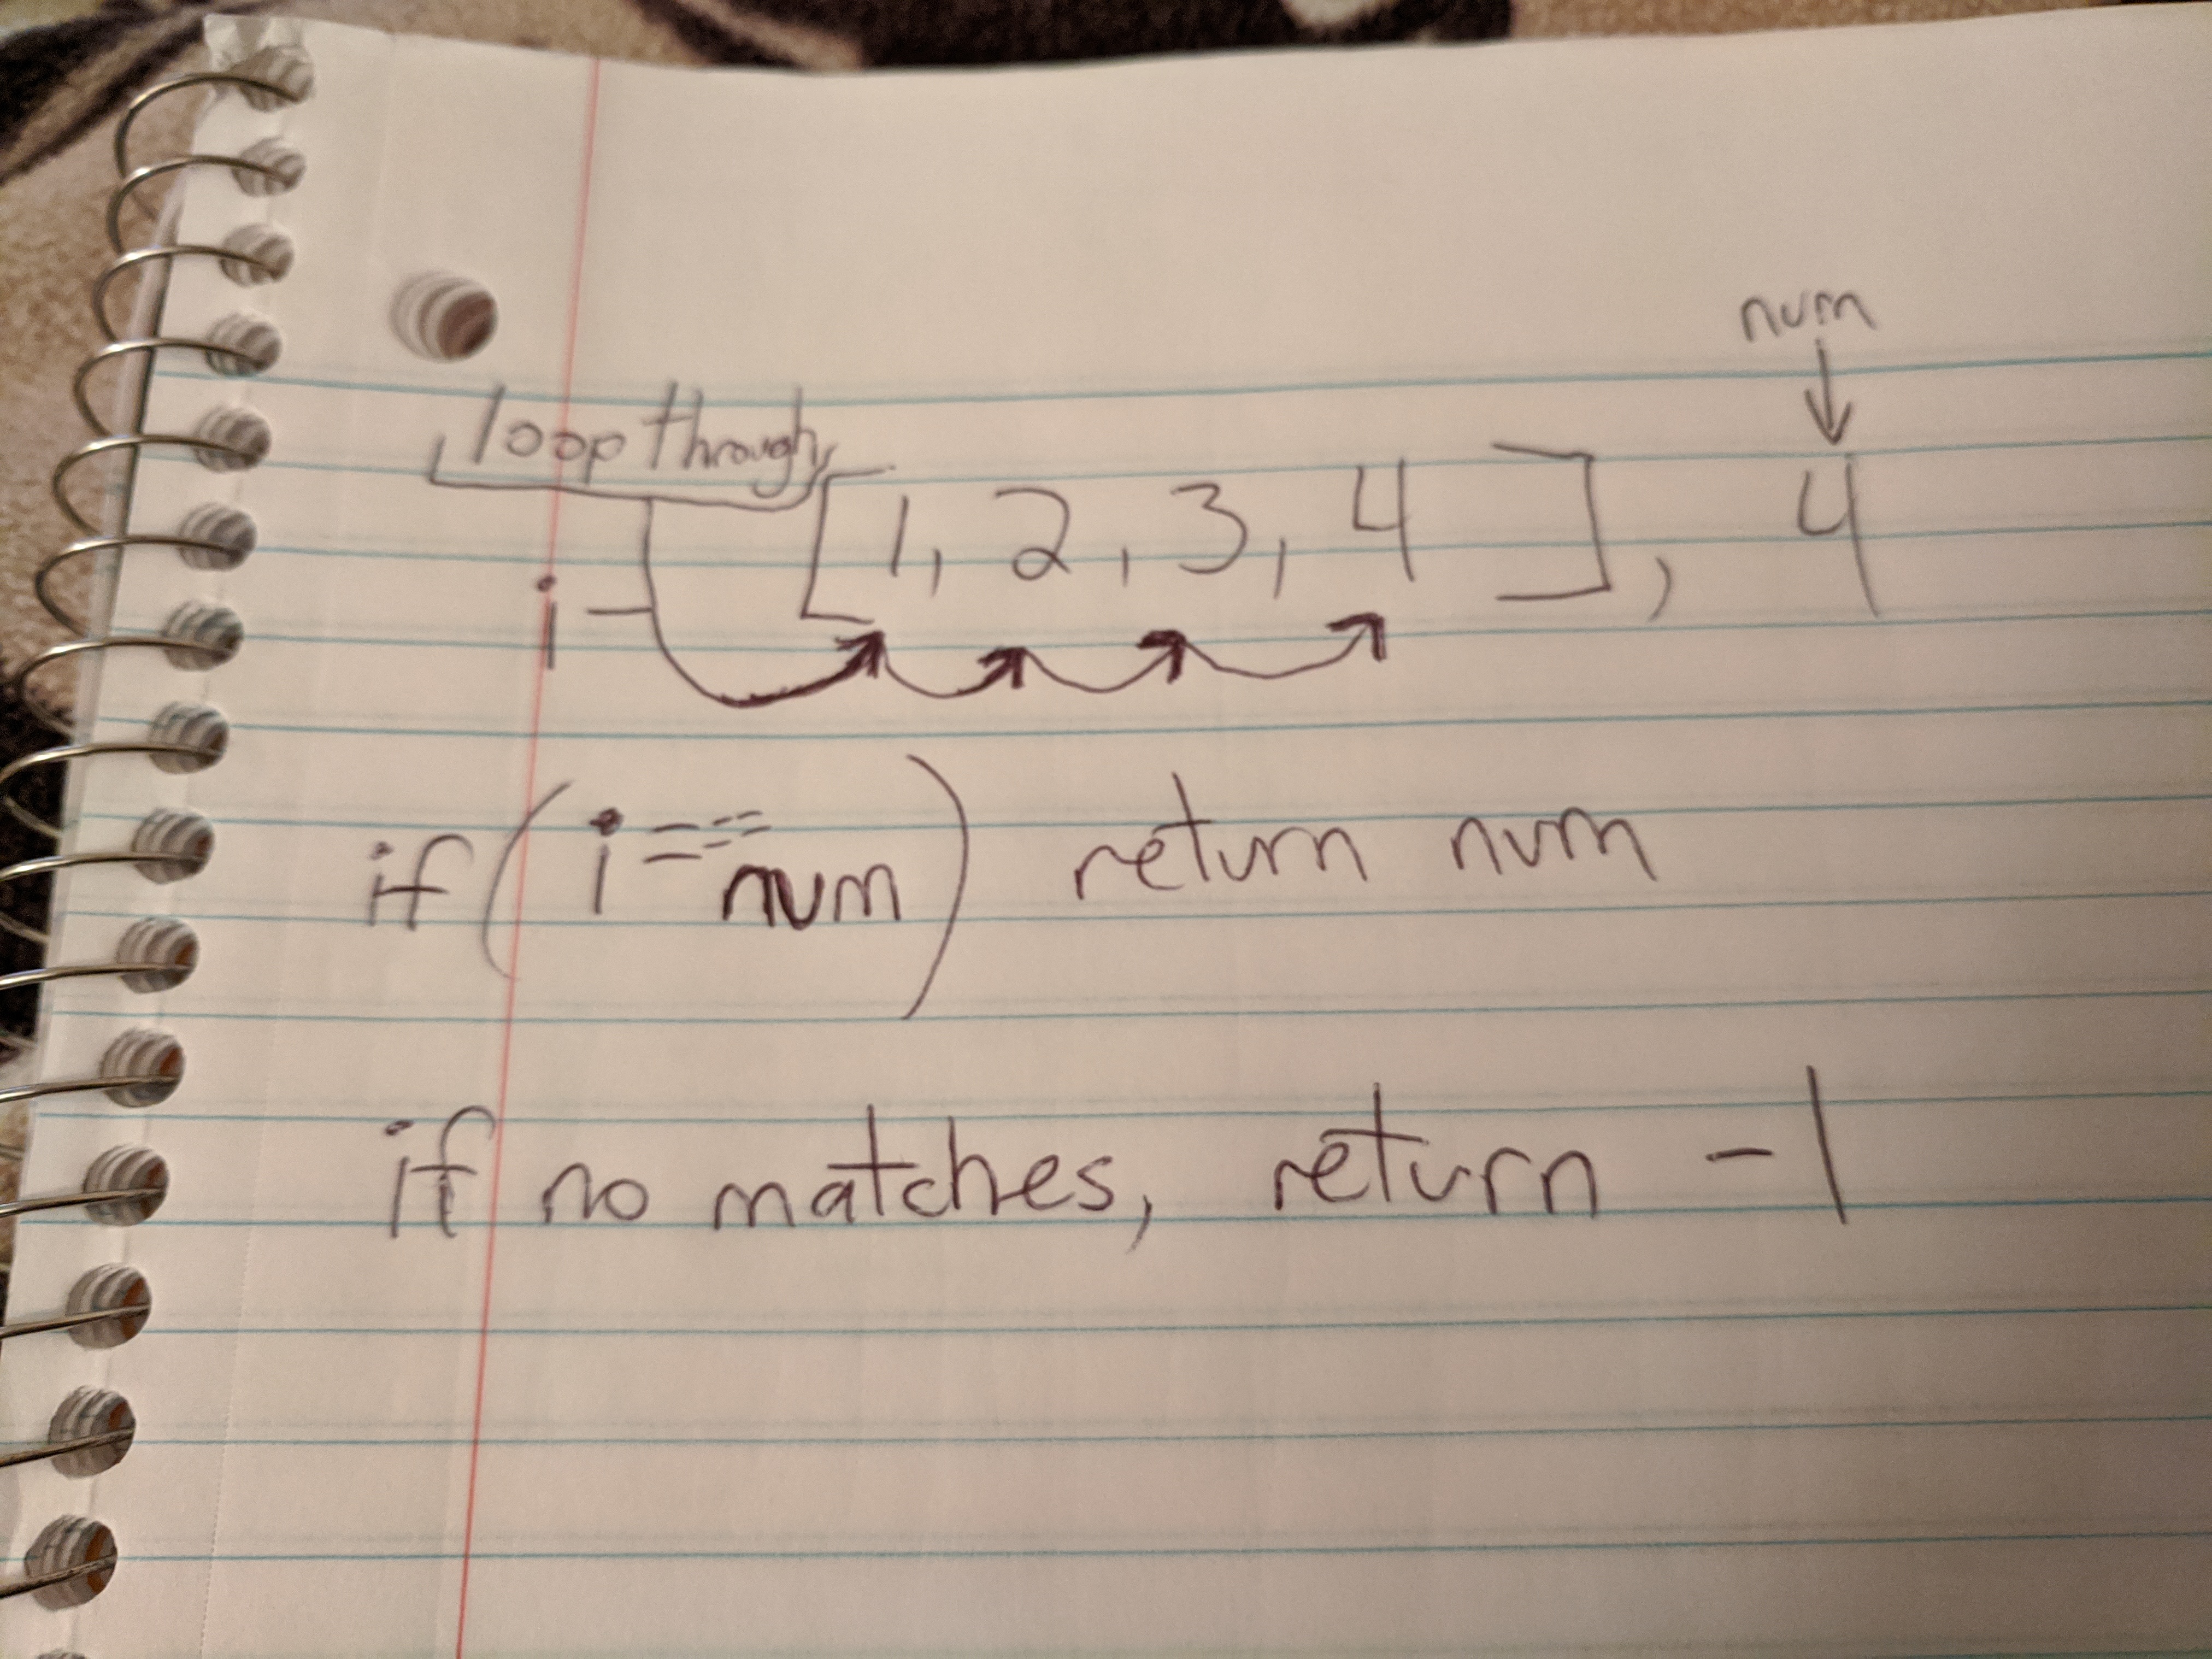 num
loop through
[1, 2, 3, 4], 4
i
if (i === num) return num
if no matches, return -1